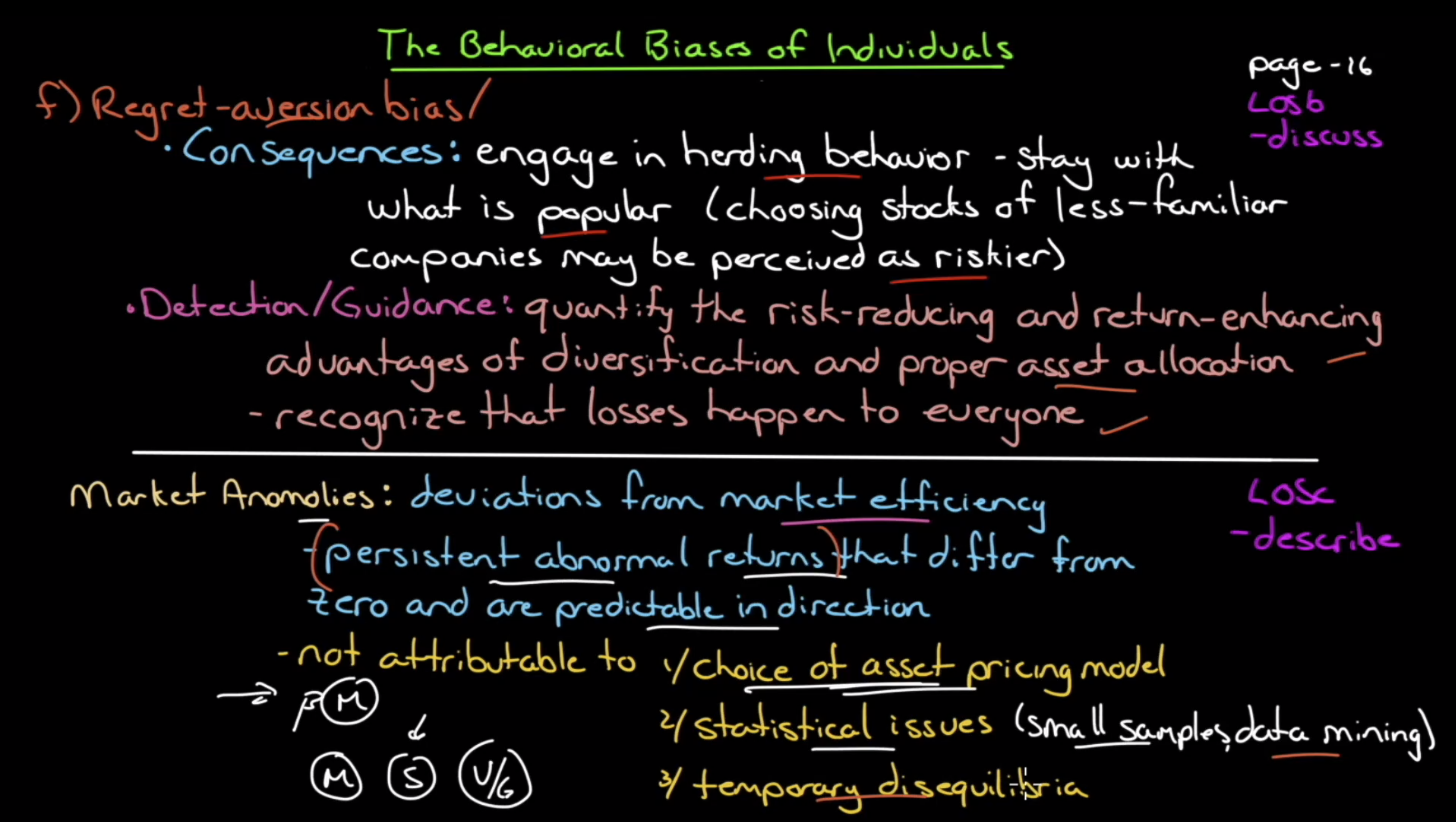 The Behavioral Biases of Individuals
page-16
LOS b
-discuss
f) Regret-aversion bias/
• Consequences: engage in herding behavior - stay with
what is popular (choosing stocks of less-familiar
companies may be perceived as riskier)
• Detection/Guidance: quantify the risk-reducing and return-enhancing
advantages of diversification and proper asset allocation
- recognize that losses happen to everyone ✓
Market Anomolies: deviations from market efficiency
LOS c
-describe
- (persistent abnormal returns) that differ from
zero and are predictable in direction
- not attributable to 1/ choice of asset pricing model
→ β M
2/ statistical issues (small samples, data mining)
↓
M S V/G
3/ temporary disequilibria